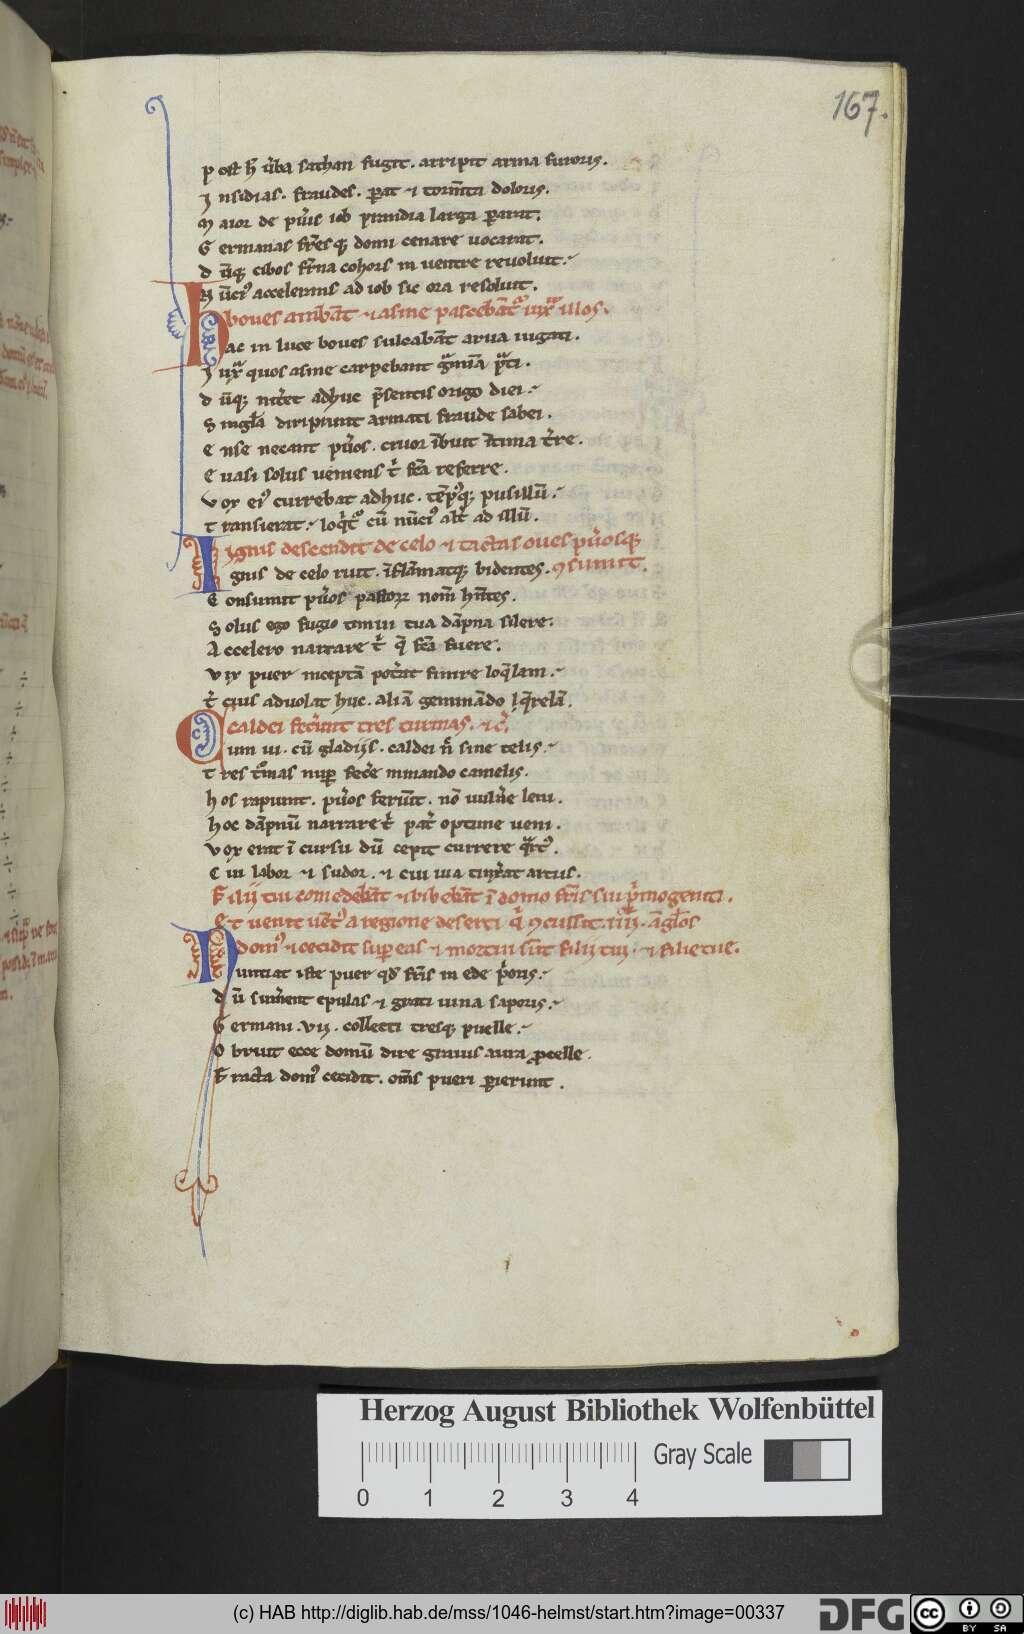 167.
p ost h̄ ŭba sathan fugit. arripit arma furoris.
I nsidias. fraudes. parat ⁊ torm̄ta doloris.
M aior de pueris iob prandia larga parant.
G ermanas fr̄esq; domi cenare uocant.
d ūq; cibos fr̄na cohors in uentre reuoluit.
N ūci⁹ accelerans ad iob sic ora resoluit.
boues arabāt ⁊ asine pascebāt᷑ iuxta illos.
H ac in luce boues sulcabāt arua iugati.
I uxta quos asine carpebant gͣmīa pͣti.
d ūq; nitet adhuc p̄sentis origo diei.
S ingl̄a diripiunt armati fraude sabei.
E nse necant pueros. cruor ībuit ītima t̄re.
E uasi solus ueniens t' fc̄a referre.
V ox ei⁹ currebat adhuc. tēp⁹q; pusillū.
T ransierat. loqͥt᷑ cū nūci⁹ alt' ad illū.
Ignis descendit de celo ⁊ tactas oues puerosq;
I gnis de celo ruit. īflāmatq; bidentes. ꝯsumit.
C onsumit pueros pastoꝝ nom̄ hn̄tes.
S olus ego fugio timui tua dāpna silere.
A ccelero narrare t' q̄ fc̄a fuere.
V ix puer inceptā pot'at finire loq̄lam.
t' cius aduolat huc. aliā geminādo q̄relā.
caldei fecerunt tres turmas. ⁊ c'.
C um in. cū gladijs. caldei n̄ sine telis.
T res t'mas nup fecere minando camelis.
h os rapiunt. pueros feriūt. nō uuln'e leui.
h oc dāpnū narrare t' pat' optime ueni.
V ox erat ī cursu dū cepit currere qͣrt⁹.
C ui labor ⁊ sudor. ⁊ cui uia
Filij tui comedebāt ⁊ bibebāt ī domo fr̄is sui pͥmogeniti.
Et uenit uēt⁹ a regione deserti qͥ ꝯcussit. iiij. āgl̄os
dom⁹ ⁊ cecidit sup eos ⁊ mortui sūt filij tui. ⁊ filie tue.
N untiat iste puer qd̄ fr̄is in ede pͥoris.
d ū sumerent epulas ⁊ grati uina saporis.
G ermani. vij. collecti tresq; puelle.
O bruit ecce domū dire grauis aura ꝓcelle.
F racta dom⁹ cecidit. om̄s pueri perierunt.
Herzog August Bibliothek Wolfenbüttel
Gray Scale
0 1 2 3 4
(c) HAB http://diglib.hab.de/mss/1046-helmst/start.htm?image=00337
DFG
cc BY SA